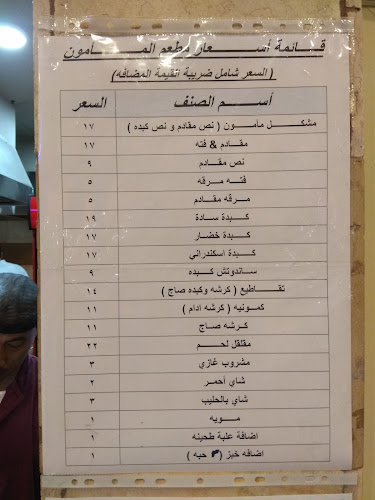 قــائمة أســـعار مطعم المـــامون
( السعر شامل ضريبة القيمة المضافه)
أســـم الصنف السعر
مشكــــل مأمــون ( نص مقادم و نص كبده ) ١٧
مقــادم & فته ١٧
نص مقــادم ٩
فتــه مرقه ٥
مرقه مقادم ٥
كبــدة سـادة ١٩
كبــدة خضار ١٧
كبــدة اسكندراني ١٧
ساندوتش كبــده ٩
تقــاطيع ( كرشه وكبده صاج ) ١٤
كمـونيه ( كرشه ادام ) ١١
كرشه صـاج ١١
مقلقل لحــم ٢٢
مشروب غازي ٣
شاي أحمـر ٢
شاي بالحليب ٣
مـــويه ١
اضافة علبة طحينه ١
اضافه خبز ( حبه ) ١